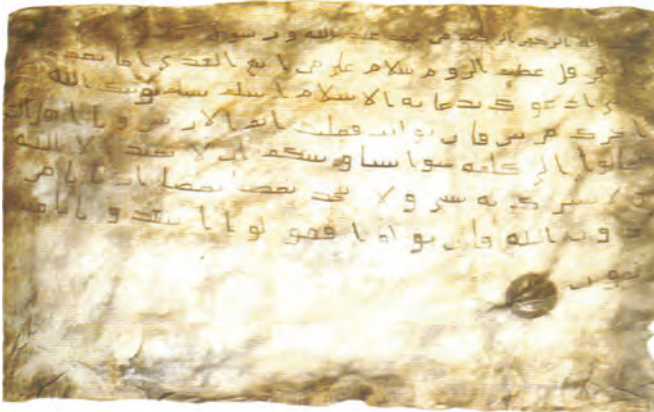 الله الرحمن الرحيم من محمد عبد الله ورسوله
هرقل عظيم الروم سلام على من اتبع الهدى اما بعد
ادعوك بدعاية الاسلام اسلم تسلم يوتك الله
اجرك مرتين فان توليت فعليك اثم الاريسين ويا اهل
تعالوا الى كلمة سوا بيننا وبينكم ان لا نعبد الا الله
ولا نشرك به ولا يتخذ بعضنا بعضا اربابا من
دون الله فان تولوا فقولوا اشهدوا بانا